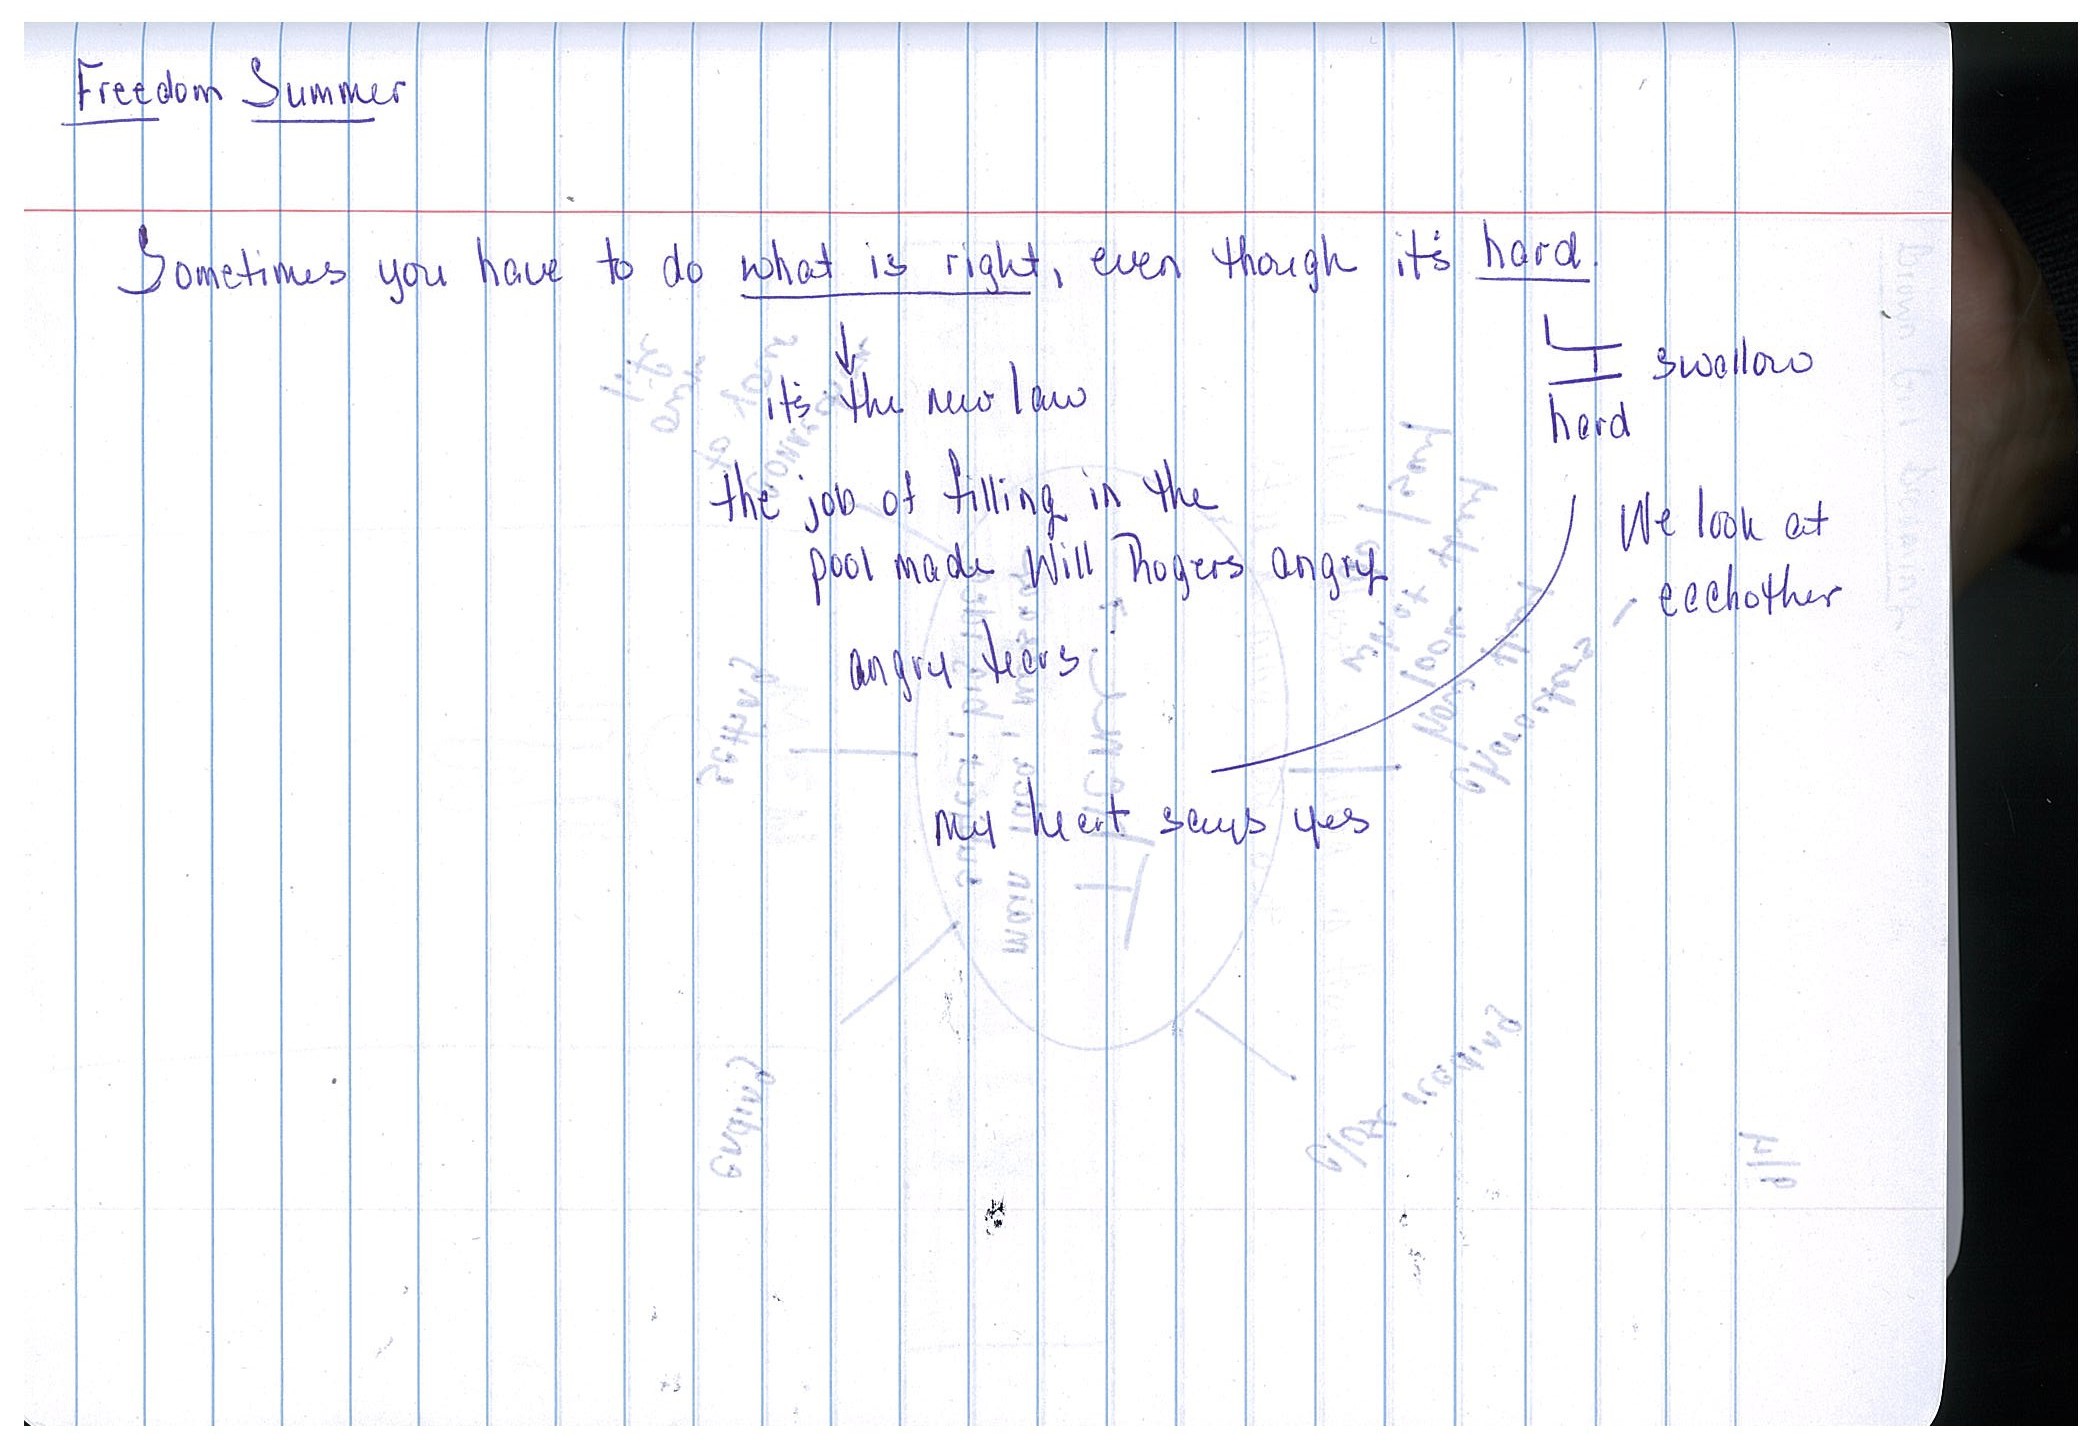 Freedom Summer
Sometimes you have to do what is right, even though it's hard.
it's the new law
I swallow
hard
the job of filling in the
pool made Will Rogers angry
We look at
eachother
angry tears
my heart says yes